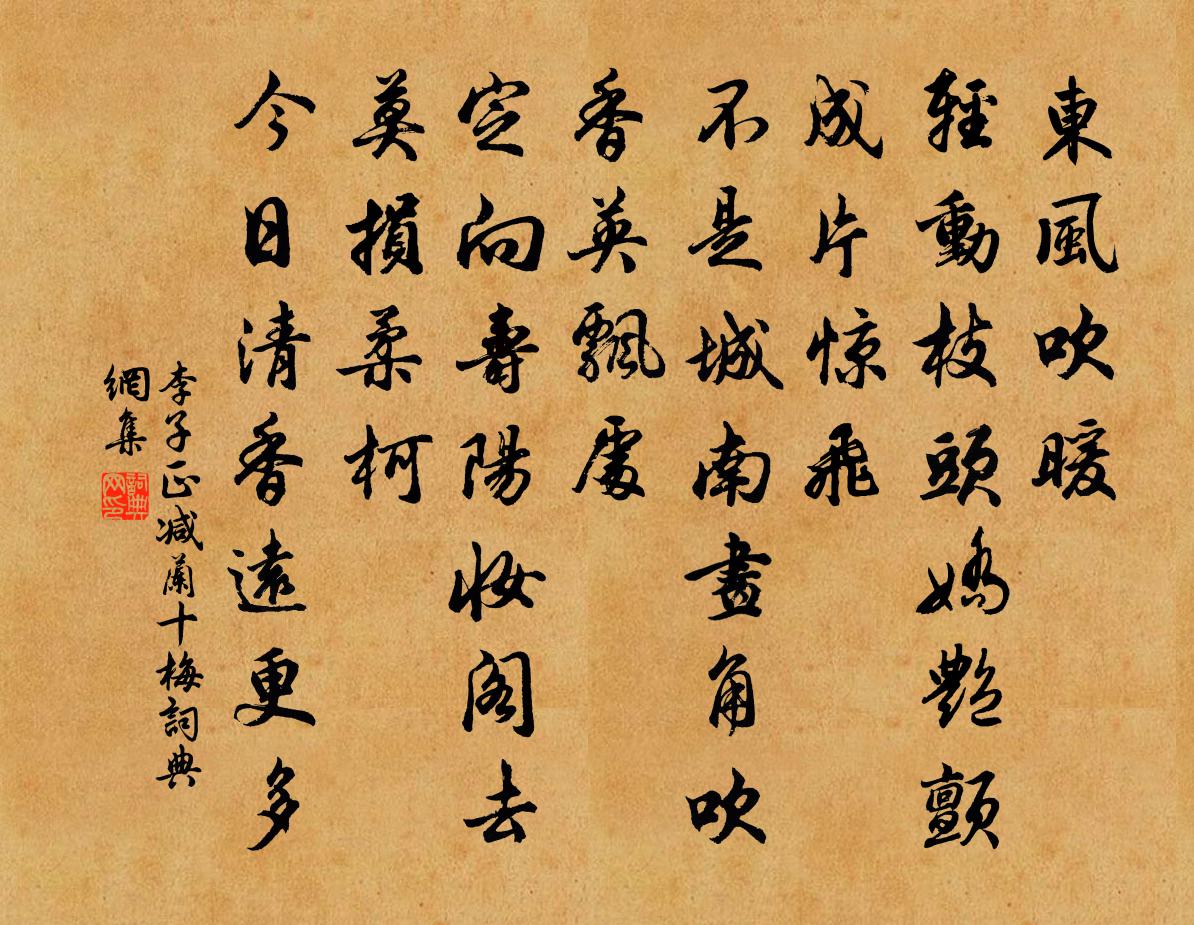 東風吹暖
輕動枝頭嬌艷顫
成片惊飛
不是城南畫角吹
香英飄處
定向壽陽妝閣去
莫損柔柯
今日清香遠更多
李子正减蘭十梅詞典
網集
詞典
网印